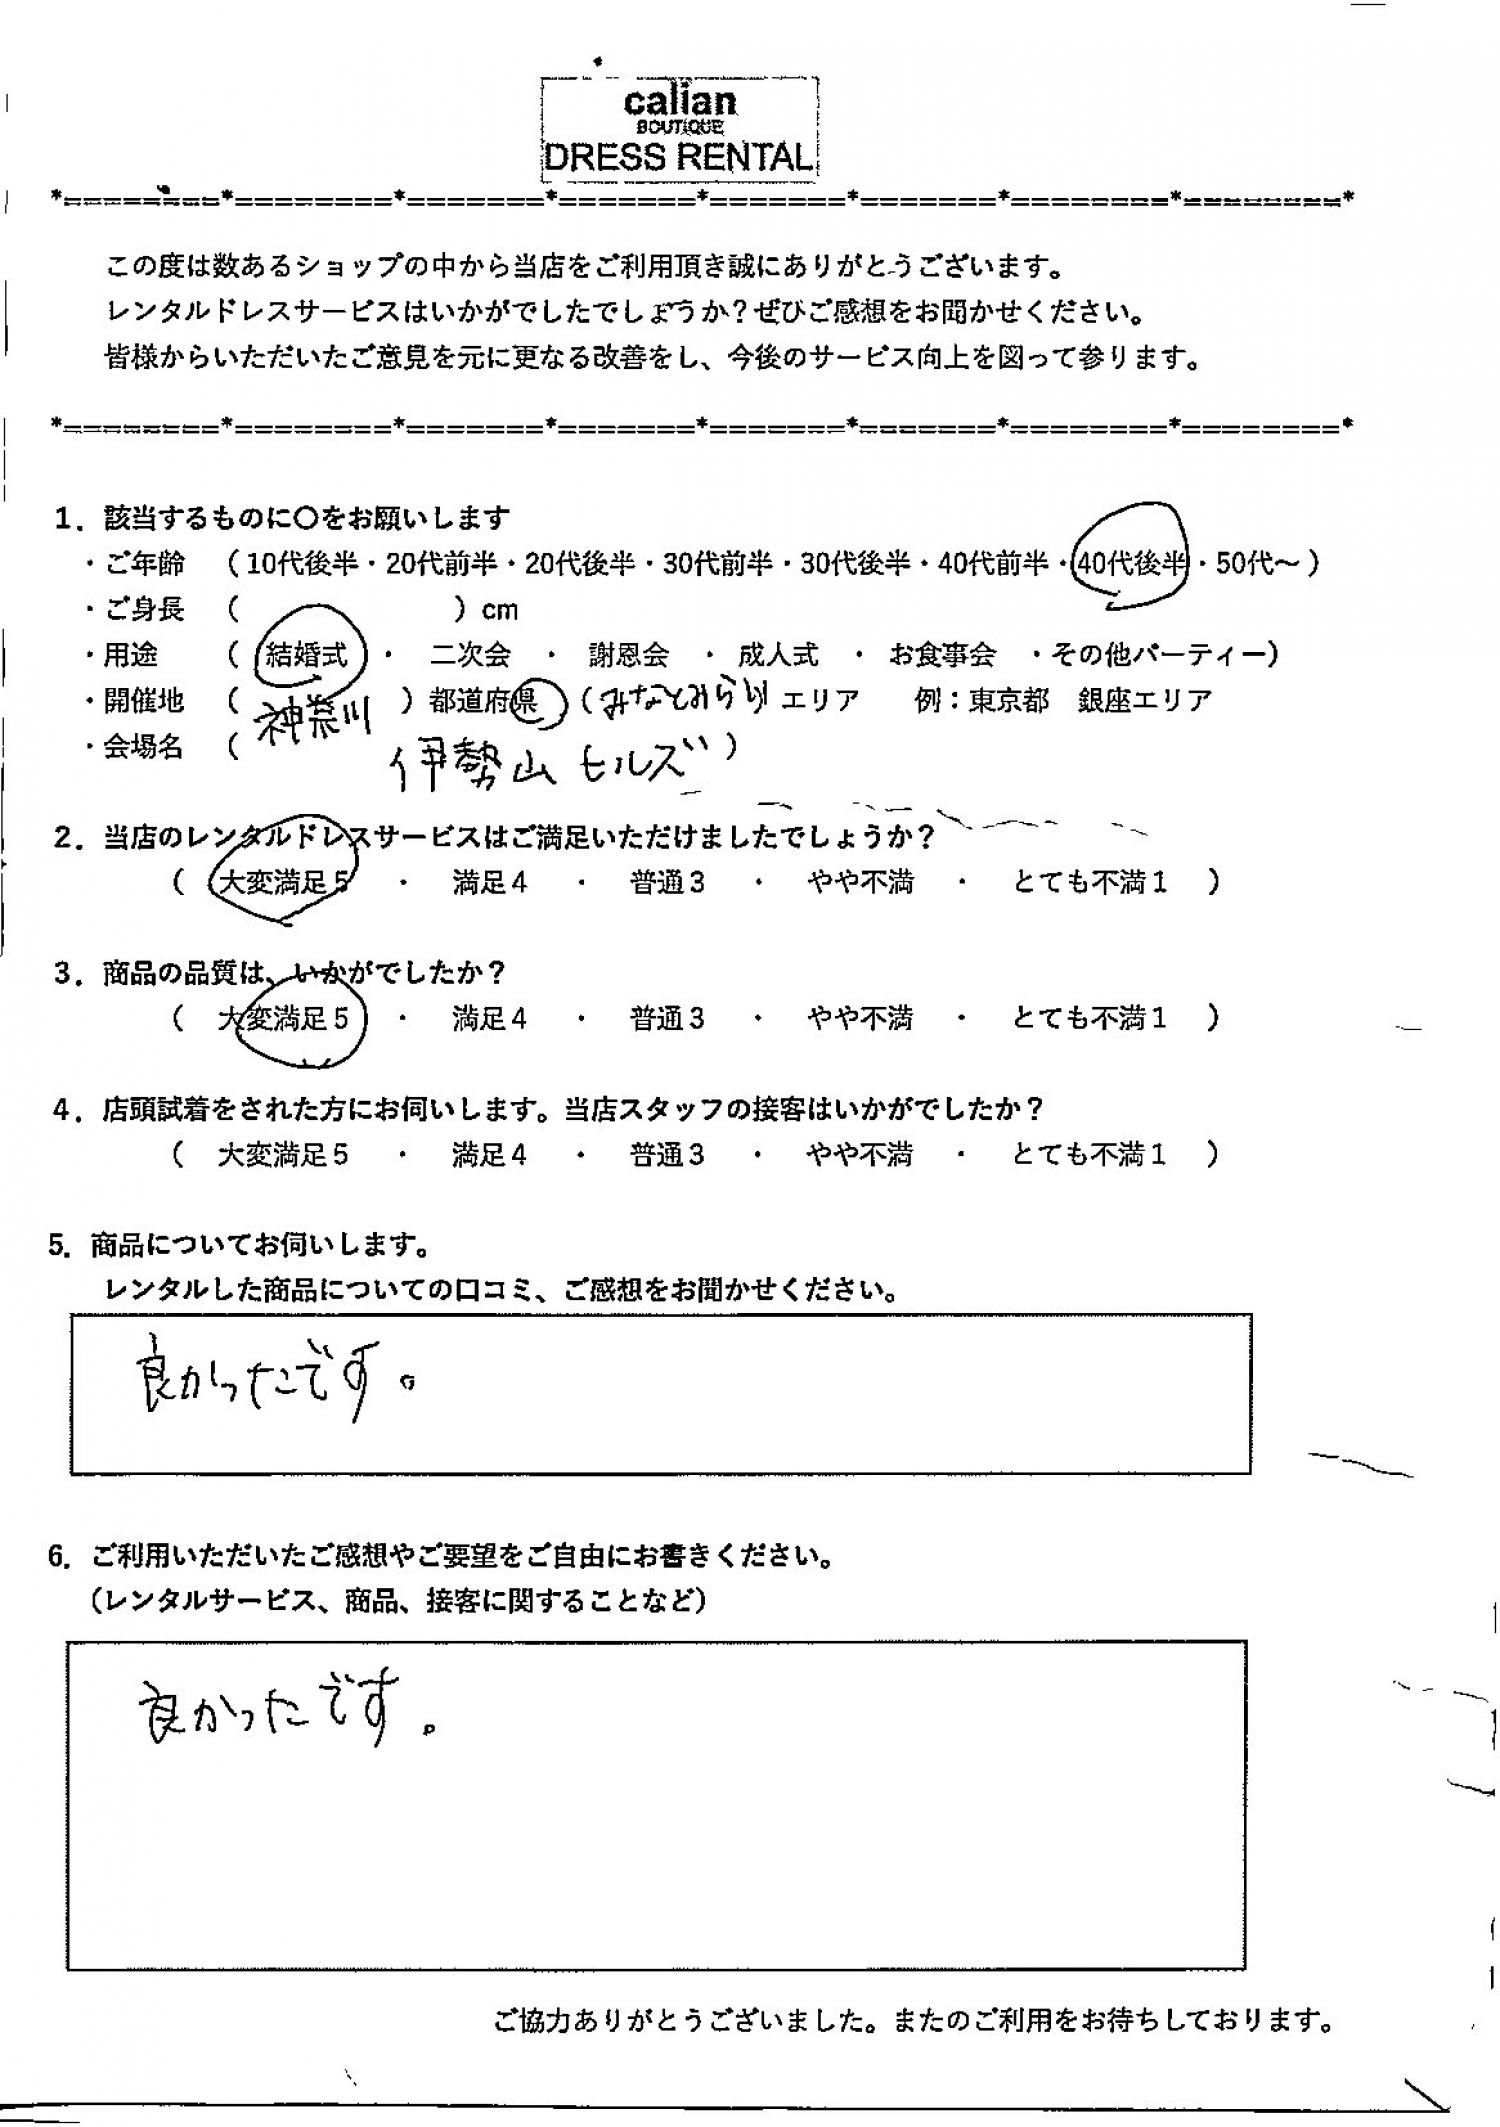 calian
BOUTIQUE
DRESS RENTAL
*========*========*=======*=======*=======*=======*========*========*
この度は数あるショップの中から当店をご利用頂き誠にありがとうございます。
レンタルドレスサービスはいかがでしたでしょうか？ぜひご感想をお聞かせください。
皆様からいただいたご意見を元に更なる改善をし、今後のサービス向上を図って参ります。
*========*========*=======*=======*=======*=======*========*========*
1．該当するものに〇をお願いします
・ご年齢　（10代後半・20代前半・20代後半・30代前半・30代後半・40代前半・40代後半・50代～）
・ご身長　（　　　　　　　　）cm
・用途　　（　結婚式　・　二次会　・　謝恩会　・　成人式　・　お食事会　・その他パーティー）
・開催地　（　神奈川　）都道府県（みなとみらい エリア　　例：東京都　銀座エリア
・会場名　（　伊勢山 ヒルズ　）
2．当店のレンタルドレスサービスはご満足いただけましたでしょうか？
（　大変満足５　・　満足４　・　普通３　・　やや不満　・　とても不満１　）
3．商品の品質は、いかがでしたか？
（　大変満足５　・　満足４　・　普通３　・　やや不満　・　とても不満１　）
4．店頭試着をされた方にお伺いします。当店スタッフの接客はいかがでしたか？
（　大変満足５　・　満足４　・　普通３　・　やや不満　・　とても不満１　）
5．商品についてお伺いします。
レンタルした商品についての口コミ、ご感想をお聞かせください。
良かったです。
6．ご利用いただいたご感想やご要望をご自由にお書きください。
（レンタルサービス、商品、接客に関することなど）
良かったです。
ご協力ありがとうございました。またのご利用をお待ちしております。